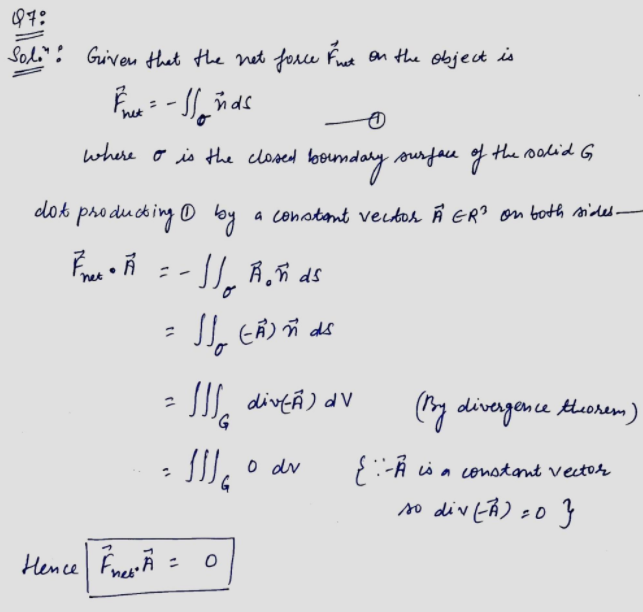 Q7:
Sol.ⁿ: Given that the net force F⃗net on the object is
F⃗net = - ∬σ n⃗ ds —①
where σ is the closed boundary surface of the solid G
dot producting ① by a constant vector A⃗ ∈ R³ on both sides—
F⃗net • A⃗ = - ∬σ A⃗ . n⃗ ds
= ∬σ (-A⃗) n⃗ ds
= ∭G div(-A⃗) dV (By divergence theorem)
= ∭G 0 dv {∵ -A⃗ is a constant vector
so div(-A⃗) = 0 }
Hence F⃗net • A⃗ = 0